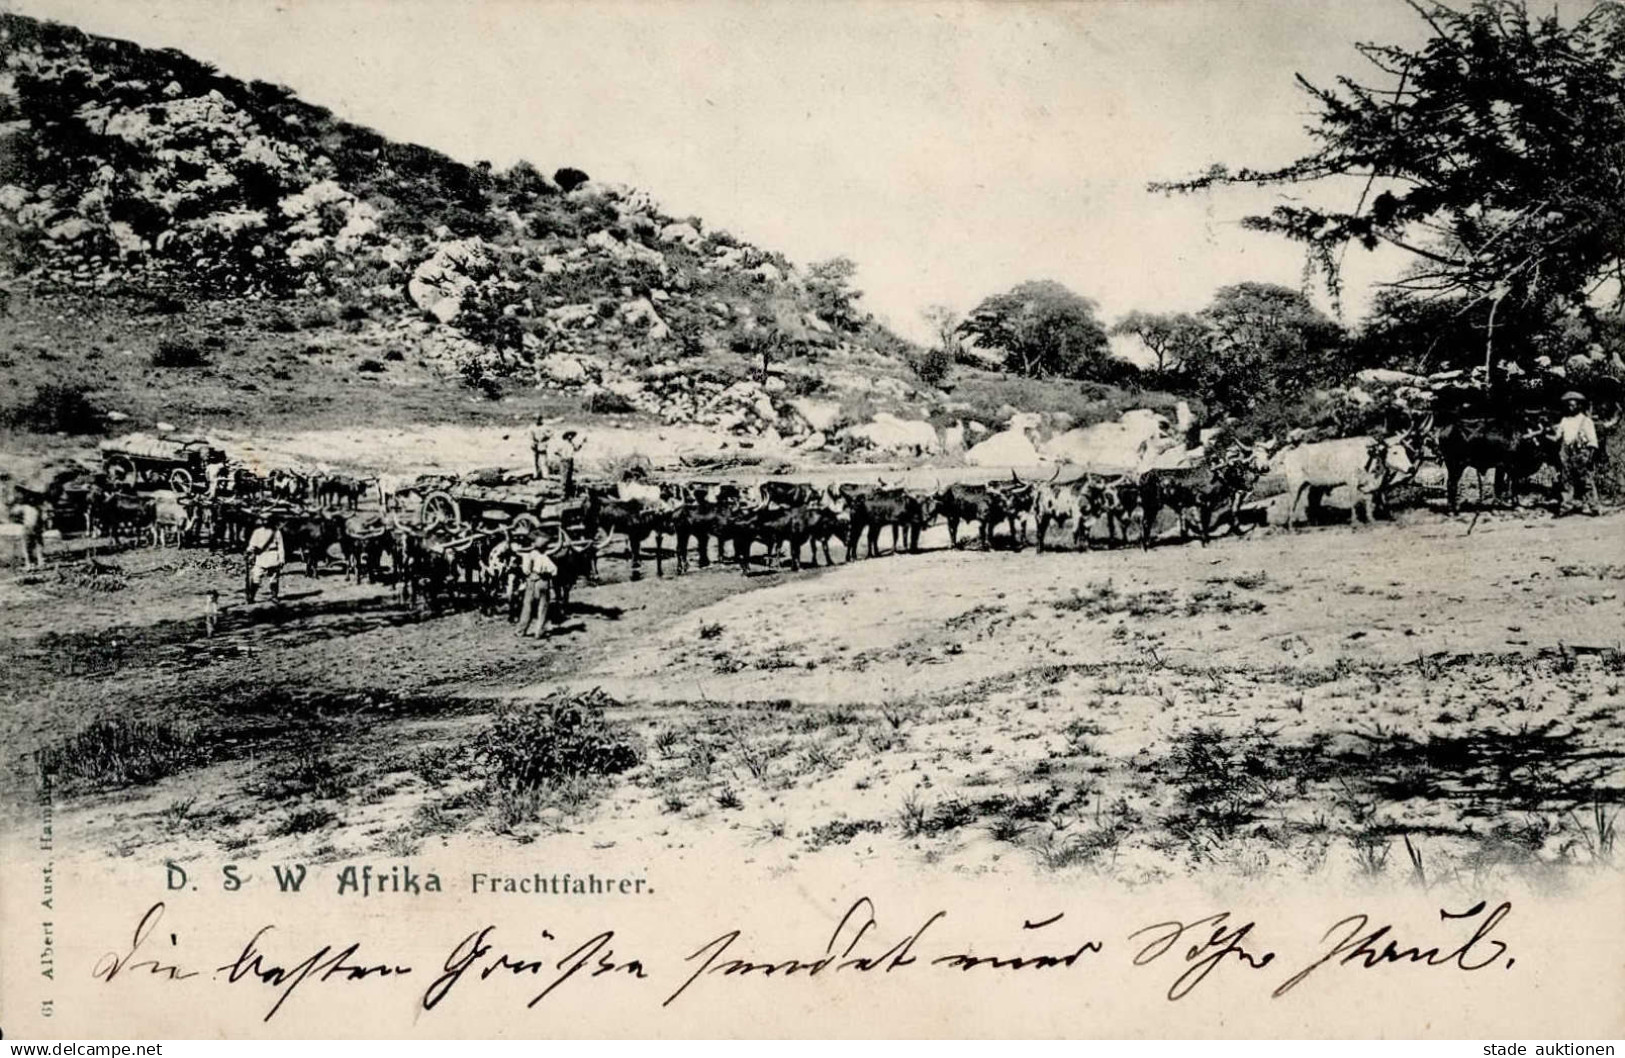 D. S W Afrika Frachtfahrer.
61 Albert Aust, Hamburg
Die besten Grüße sendet nur Ihr Paul.
Delcampe.net
stade auktionen